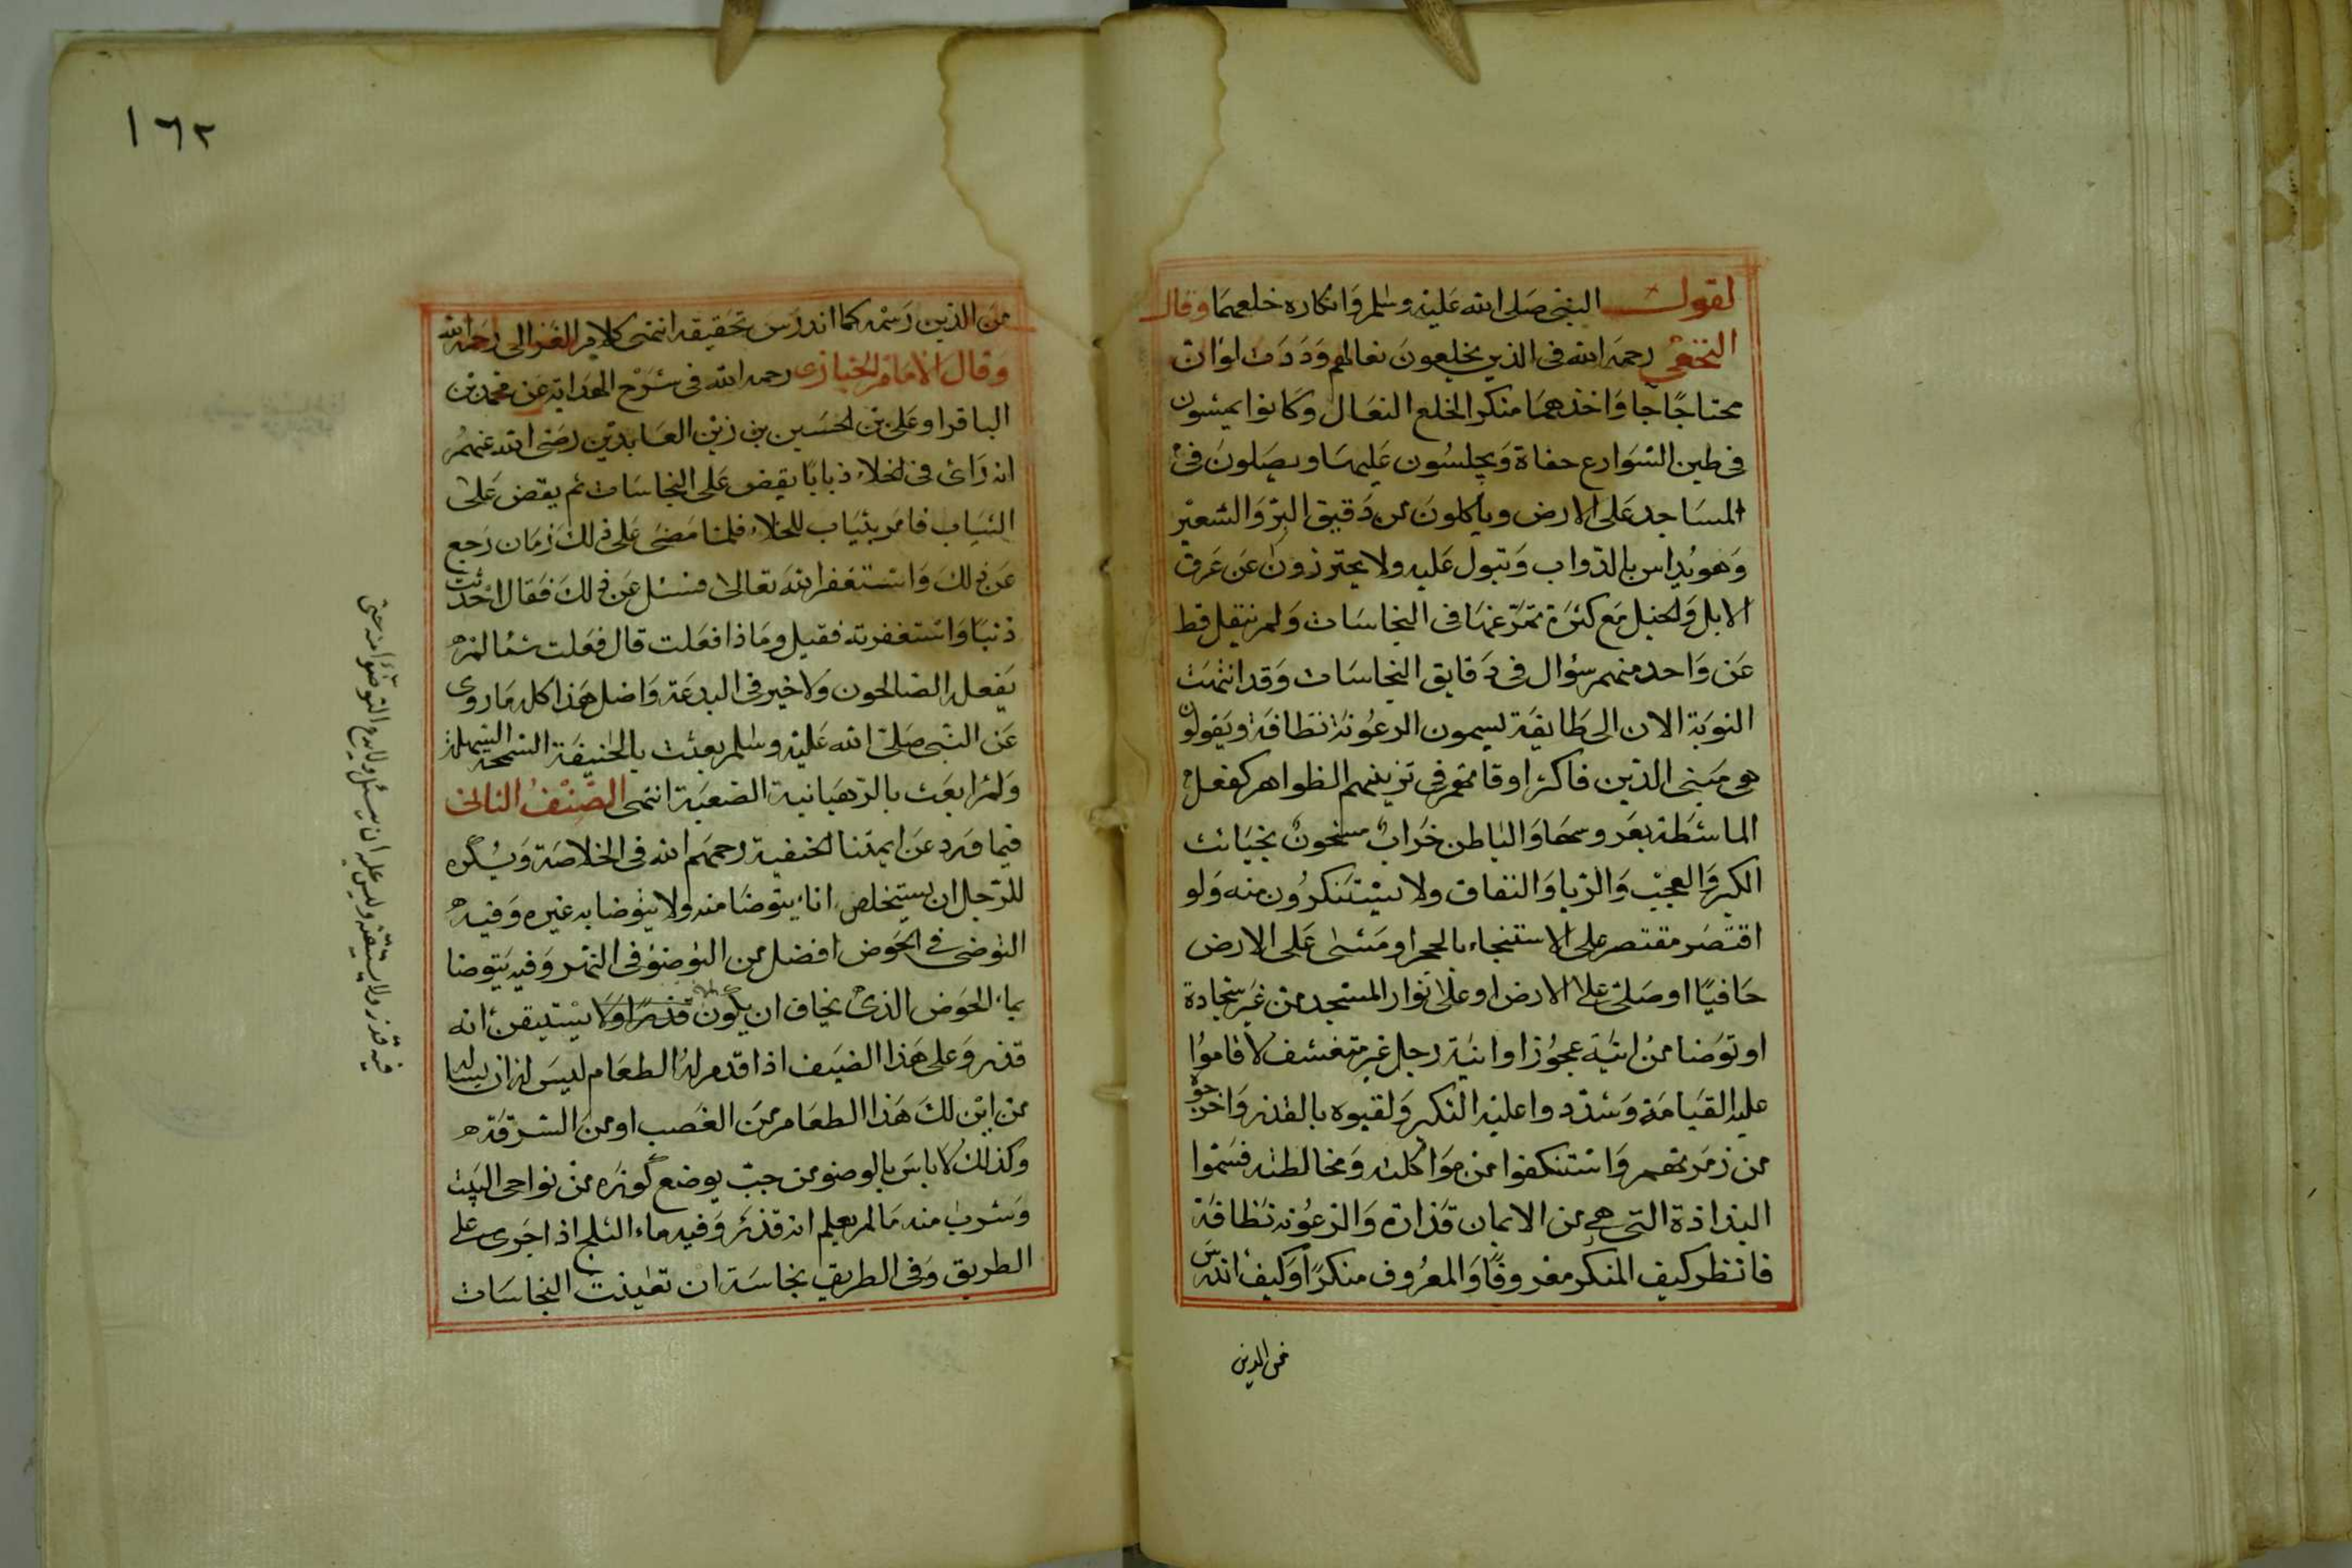 لقول النبى صلى الله عليه وسلم وانكاره خلعهما وقال
النخعى رحمه الله فى الذين يخلعون نعالهم وددت لو ان
محتاجًا جا واخذهما منكر الخلع النعال وكانوا يمشون
فى طين الشوارع حفاة ويجلسون عليها ويصلون فى
المساجد على الارض وياكلون من دقيق البر والشعير
وهو يداس بالدواب وتبول عليه ولا يحترزون عن عرق
الابل والخيل مع كثرة تمرغها فى النجاسات ولم ينقل قط
عن واحد منهم سؤال فى دقايق النجاسات وقد انتهت
النوبة الان الى طايفة يسمون الرعونة نظافة ويقولون
هى مبنى الدين فاكثر اوقاتهم فى تزيينهم الظواهر كفعل
الماشطة بعروسها والباطن خراب مشحون بخبائث
الكبر والعجب والريا والنفاق ولا يستنكرون منه ولو
اقتصر مقتصر على الاستنجاء بالحجر او مشى على الارض
حافيًا او صلى على الارض او على بوار المسجد من غير سجادة
او توضا من انية عجوز او انية رجل غير متقشف لاقاموا
عليه القيامة وشددوا عليه النكير ولقبوه بالقذر واخرجوه
من زمرتهم واستنكفوا من مواكلته ومخالطته فسموا
البذاذة التى هى من الايمان قذارة والرعونة نظافة
فانظر كيف المنكر معروفًا والمعروف منكرًا وكيف اندرس
من الدين
١٦٢
من الذين رسمه كما اندرس تحقيقه انتهى كلام الغزالى رحمه الله
وقال الامام الخبازى رحمه الله فى شرح الهداية عن محمد بن
الباقر او على بن الحسين بن زين العابدين رضى الله عنهم
انه رائ فى الخلاء ذبابًا يقض على النجاسات ثم يقض على
الثياب فامر بثياب للخلاء فلما مضى على ذلك زمان رجع
عن ذلك واستغفر الله تعالى فسئل عن ذلك فقال احدثت
ذنبًا واستغفرته فقيل وماذا فعلت قال فعلت شئا لم
يفعله الصالحون ولا خير فى البدعة واصل هذا كله ما روى
عن النبى صلى الله عليه وسلم بعثت بالحنيفة السمحة السهلة
ولم ابعث بالرهبانية الصعبة انتهى الصنف الثانى
فيما ورد عن ايمتنا الحنفية رحمهم الله فى الخلاصة ويكره
للرجل ان يستخلص اناء يتوضا منه ولا يتوضا به غيره وفيه
التوضى فى الحوض افضل من التوضؤ فى النهر وفيه يتوضا
بماء الحوض الذى يخاف ان يكون قذرًا ولا يستيقن انه
قذر وعلى هذا الضيف اذا قدم له الطعام ليس له ان يساله
من اين لك هذا الطعام من الغصب او من السرقة
وكذلك لا باس بالوضو من جب يوضع كوزه من نواحى البيت
وشرب منه مالم يعلم انه قذر وفيه ماء الثلج اذا جرى على
الطريق وفى الطريق نجاسة ان تغيبت النجاسات
فيه قذر ولا يستيقنه وليس عليه ان يسئل ولا يدع التوضؤ منه حتى